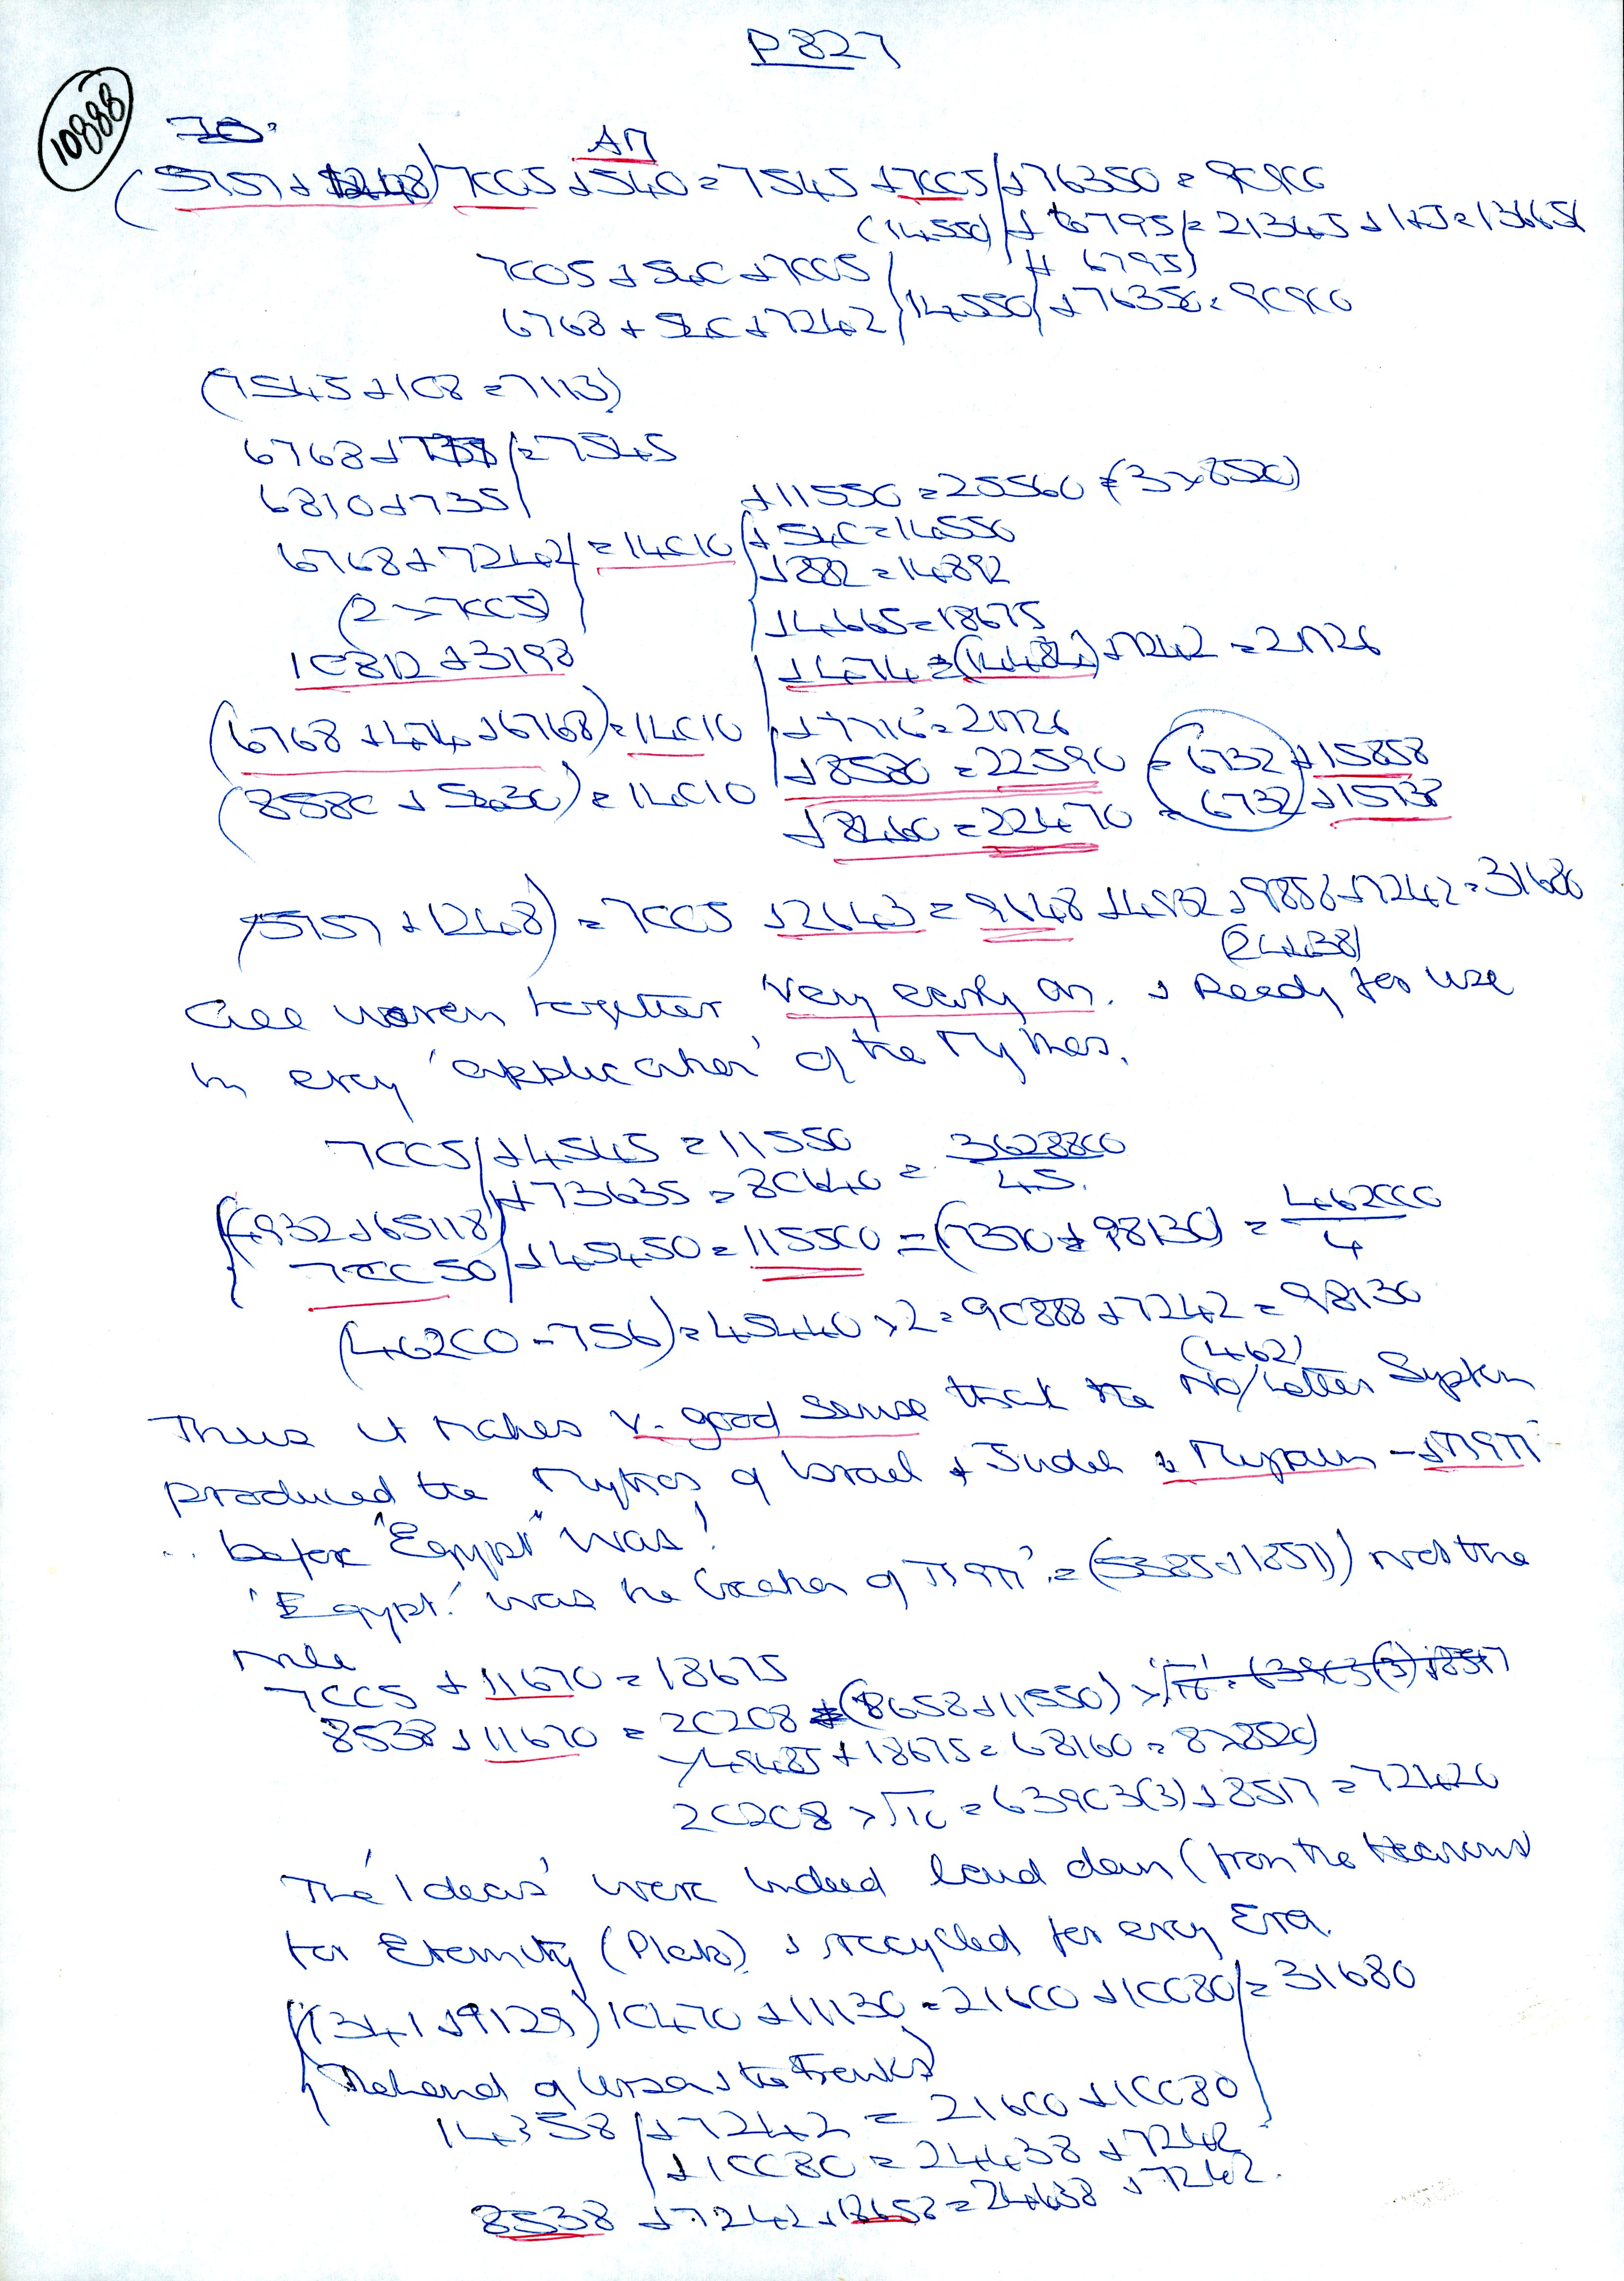 P827
10888
70.
AM
(5757 + 1248) 7005 + 540 = 7545 + 7005 + 76350 = 90900
(14550) + 6795 = 21345 + 115 = 136651
7005 + 540 + 7005 + 6795)
6768 + 540 + 7242 14550 + 76350 = 90900
(7545 + 108 = 7113)
6768 + = 7545
6810 + 735 + 11550 = 25560 = (3 × 8520)
6768 + 7242 = 14010 + 540 = 14550
+ 882 = 14892
(2 × 7005) + 4665 = 18675
10812 + 3198 + 474 = (14484) + 7242 = 21726
(6768 + 474 + 6768) = 14010 + 7716 = 21726
(8580 + 5430) = 14010 + 8580 = 22590 = 6732 + 15858
+ 8460 = 22470 = 6732 + 15738
(5757 + 1248) = 7005 + 2643 = 9648 + 4932 + 9858 + 7242 = 31680
(24438)
all woven together very early on. + Ready for use
in every 'application' of the Mythos.
7005 + 4545 = 11550
+ 73635 = 80640 = 3628800
45.
(4932 + 65118) + 45450 = 115500 = (17370 + 98130) = 462000
70050 4
(46200 - 756) = 45440 × 2 = 90888 + 7242 = 98130
(462)
Thus it makes v. good sense that the No/Letter System
produced the Mythos of Israel + Judah
.. before "Egypt" was!
'Egypt' was the location of = (5385 + 1857) not the
7005 + 11670 = 18675
8538 + 11670 = 20208 = (8658 + 11550) × √10 = 63903(3) + 8517
49485 + 18675 = 68160 = 8 × 8520
20208 × √10 = 63903(3) + 8517 = 72420
The 'Ideas' were indeed laid down (from the Heavens
for Eternity (Plato) + recycled for every Era.
(1341 + 9129) 10470 + 11130 = 21600 + 10080 = 31680
of Ursa + the
14358 + 7242 = 21600 + 10080
+ 10080 = 24438 + 7242
8538 + 7242 + 8658 = 24438 + 7242.